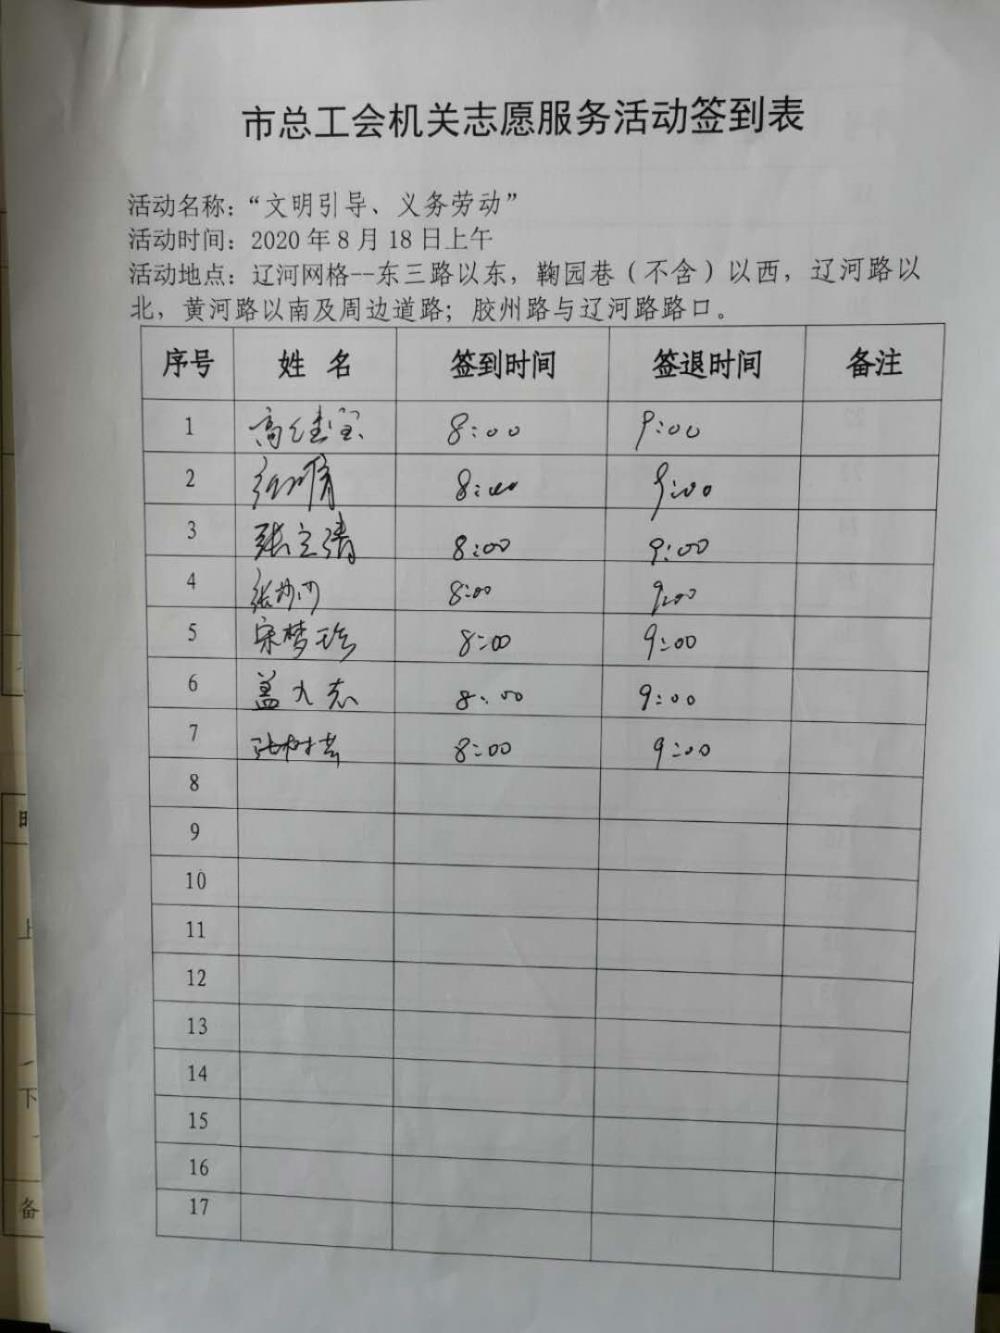 市总工会机关志愿服务活动签到表
活动名称：“文明引导、义务劳动”
活动时间：2020年8月18日上午
活动地点：辽河网格--东三路以东，鞠园巷（不含）以西，辽河路以
北，黄河路以南及周边道路；胶州路与辽河路路口。
序号 姓 名 签到时间 签退时间 备注
1 高佳宝 8:00 9:00
2 8:00 9:00
3 张立清 8:00 9:00
4 8:00 9:00
5 宋梦珍 8:00 9:00
6 盖九志 8:00 9:00
7 8:00 9:00
8
9
10
11
12
13
14
15
16
17
上
下
备